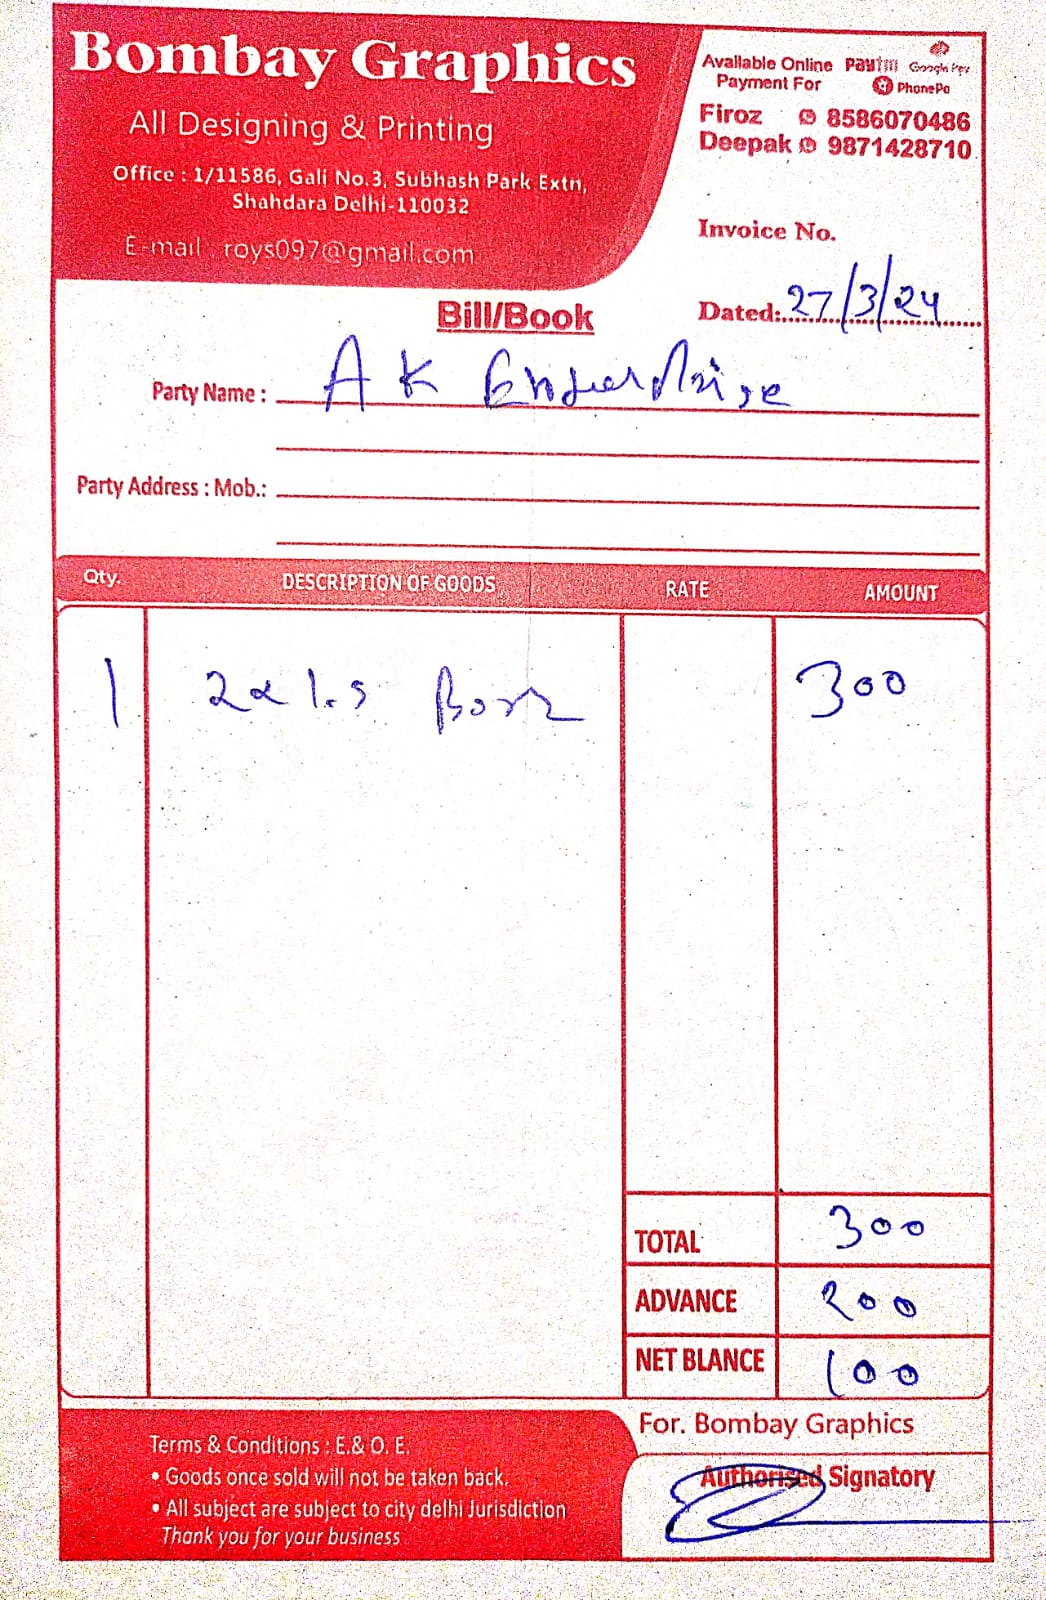 Bombay Graphics
All Designing & Printing
Office : 1/11586, Gali No.3, Subhash Park Extn,
Shahdara Delhi-110032
E-mail : roys097@gmail.com
Available Online Paytm Google Pay
Payment For PhonePe
Firoz 8586070486
Deepak 9871428710
Invoice No.
Bill/Book
Dated: 27/3/24
Party Name : A K Enterprise
Party Address : Mob.:
Qty. DESCRIPTION OF GOODS RATE AMOUNT
1 2x1.5 300
TOTAL 300
ADVANCE 200
NET BLANCE 100
For. Bombay Graphics
Authorised Signatory
Terms & Conditions : E.& O. E.
• Goods once sold will not be taken back.
• All subject are subject to city delhi Jurisdiction
Thank you for your business